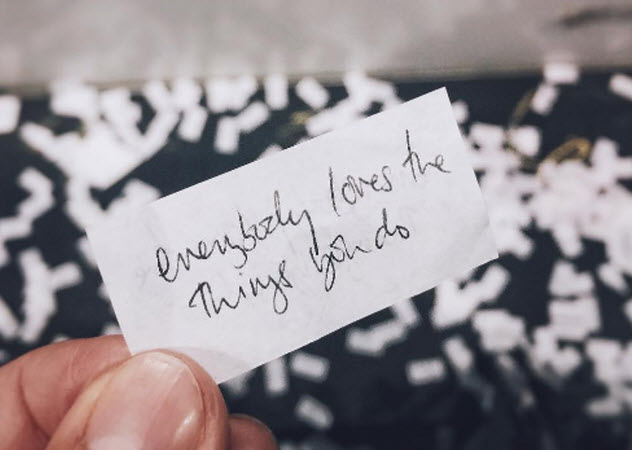 everybody loves the
things you do